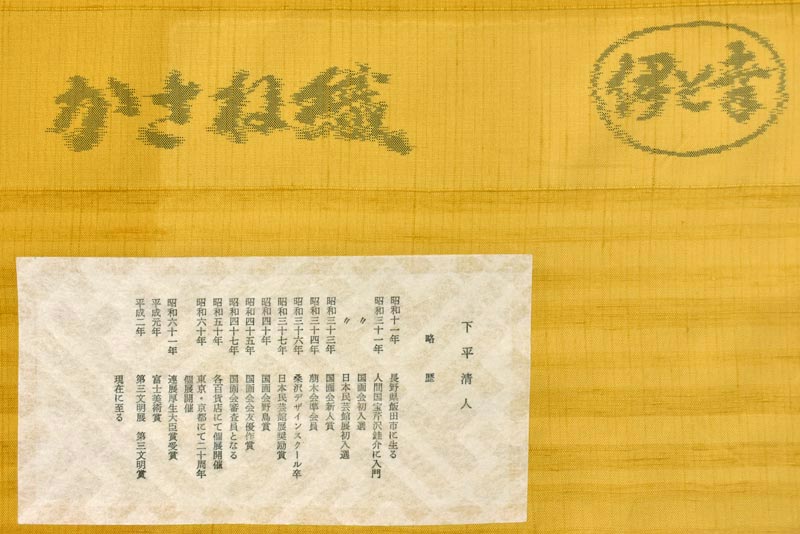 かさね織
伊と幸
下平清人
略歴
昭和十一年 長野県飯田市に生る
昭和三十一年 人間国宝芹沢銈介に入門
〃 国画会初入選
〃 日本民芸館展初入選
昭和三十三年 国画会新人賞
昭和三十四年 萠木会準会員
昭和三十六年 桑沢デザインスクール卒
昭和三十七年 日本民芸館展奨励賞
昭和四十年 国画会野島賞
昭和四十五年 国画会会友優作賞
昭和四十七年 国画会審査員となる
昭和五十年 各百貨店にて個展開催
昭和六十年 東京・京都にて二十周年
個展開催
昭和六十一年 連展厚生大臣賞受賞
平成元年 富士美術賞
平成二年 第三文明展 第三文明賞
現在に至る